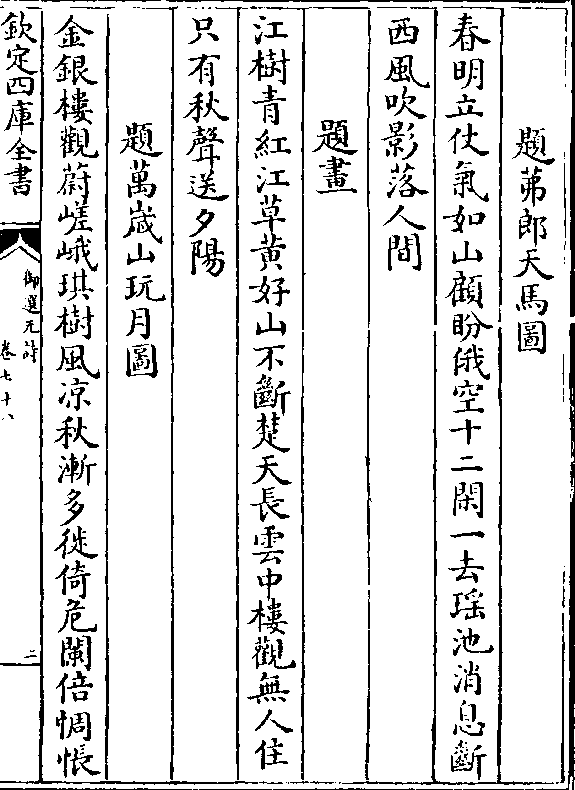 題茀郎天馬圖
春明立仗氣如山顧盼俄空十二閑一去瑶池消息斷
西風吹影落人間
題畫
江樹青紅江草黄好山不斷楚天長雲中樓觀無人住
只有秋聲送夕陽
題萬嵗山玩月圖
金銀樓觀蔚嵯峨琪樹風凉秋漸多徙倚危闌倍惆悵
欽定四庫全書
御選元詩
卷七十八
二